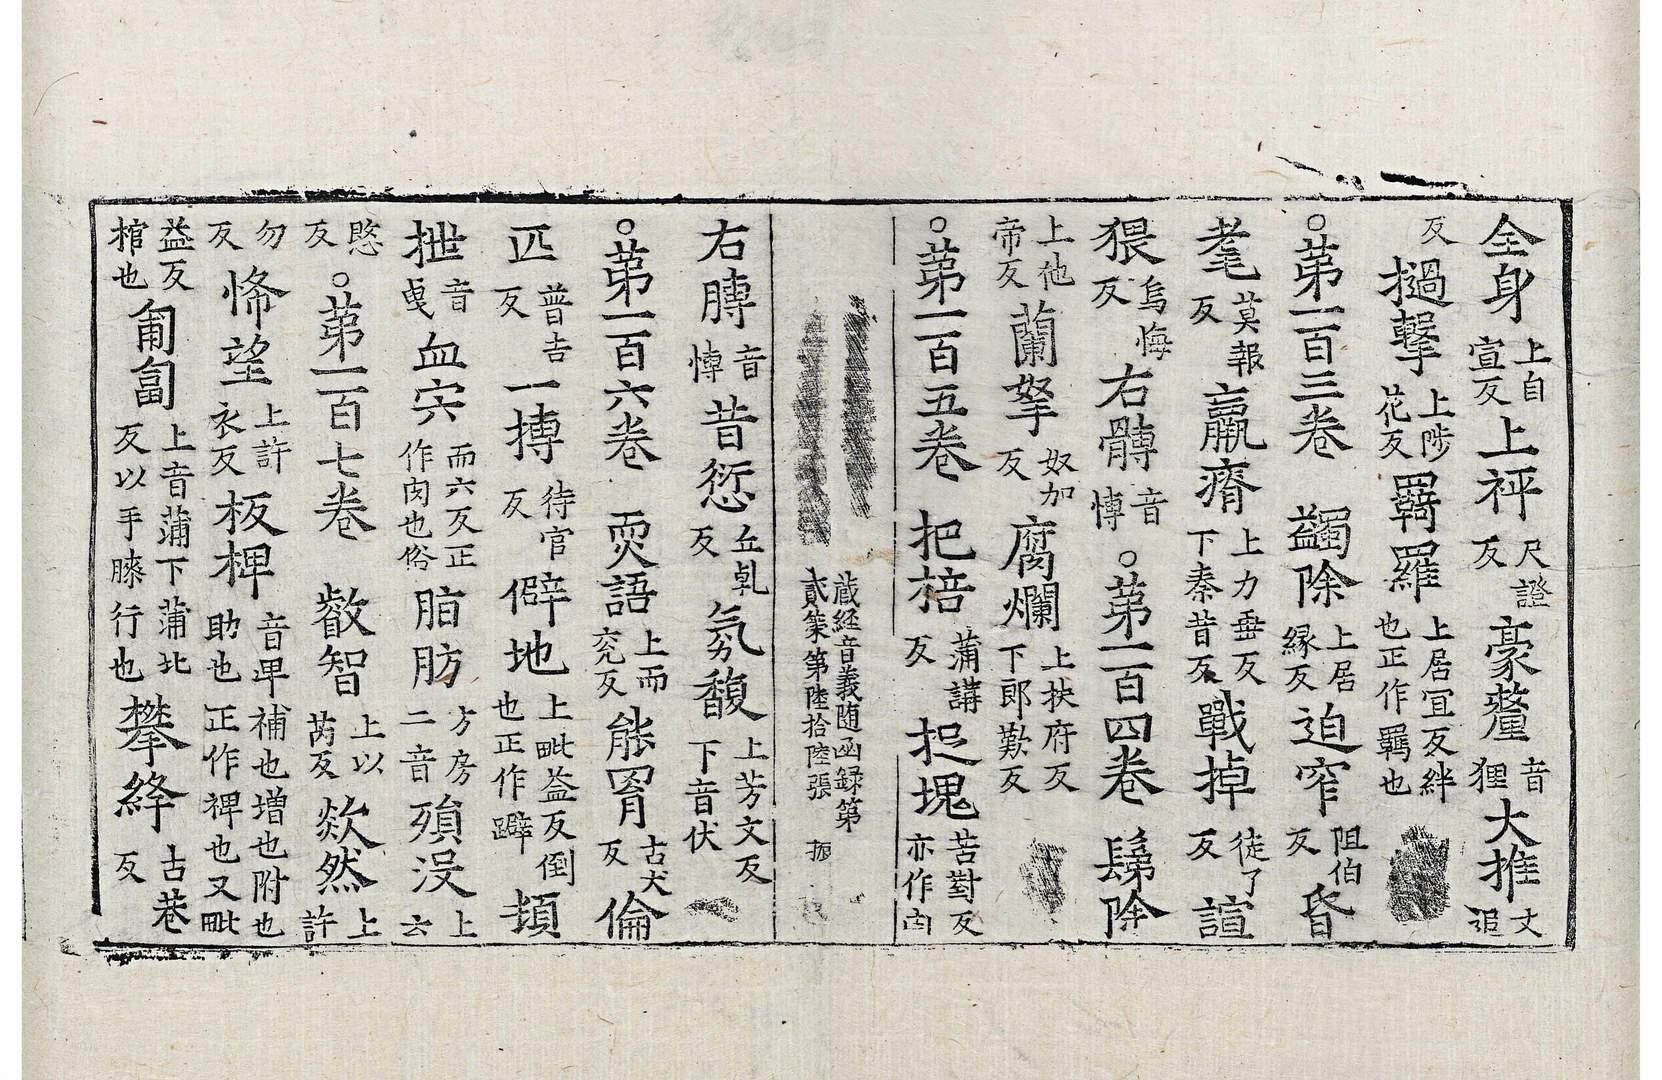 全身上自宣反上秤尺證反豪氂音狸大推文追
反撾擊上陟花反羇羅上居宜反絆也正作羈也
○第一百三卷 蠲除上居緣反迫窄阻伯反昏
耄莫報反羸瘠上力垂反下秦昔反戰掉徒了反諠
猥烏悔反右髆音愽○第一百四卷 髢除
上他帝反蘭拏奴加反腐爛上扶府反下郎歎反
○第一百五卷 把棓蒲講反塊苦對反亦作凷
藏経音義随函録第
貳第陸拾陸張 振
右膊音愽昔愆丘乹反氛馥上芳文反下音伏
○第一百六卷 耎語上而兖反能罥古犬反倫
匹普吉反一摶待官反僻地上毗益反倒也正作躃頞
抴音曳血宍而六反正作肉也俗脂肪方房二音殞没上
愍反○第一百七卷 叡智上以芮反欻然上許
勿反悕望上許衣反板椑音卑補也増也附也助也正作裨也又毗
益反棺也匍匐上音蒲下蒲北反以手膝行也攀絳古巷反